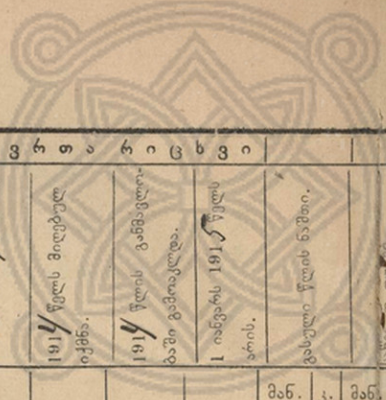 ვ რ თ ა რ ი ც ხ ვ ი
1914 წელს მიღებულ
იქმნა.
1914 წლის განმავლო-
ბაში გამოაკლდა.
1 იანვარს 1915 წელს
არის.
გასული წლის ნაშთი.
მან. კ. მან.